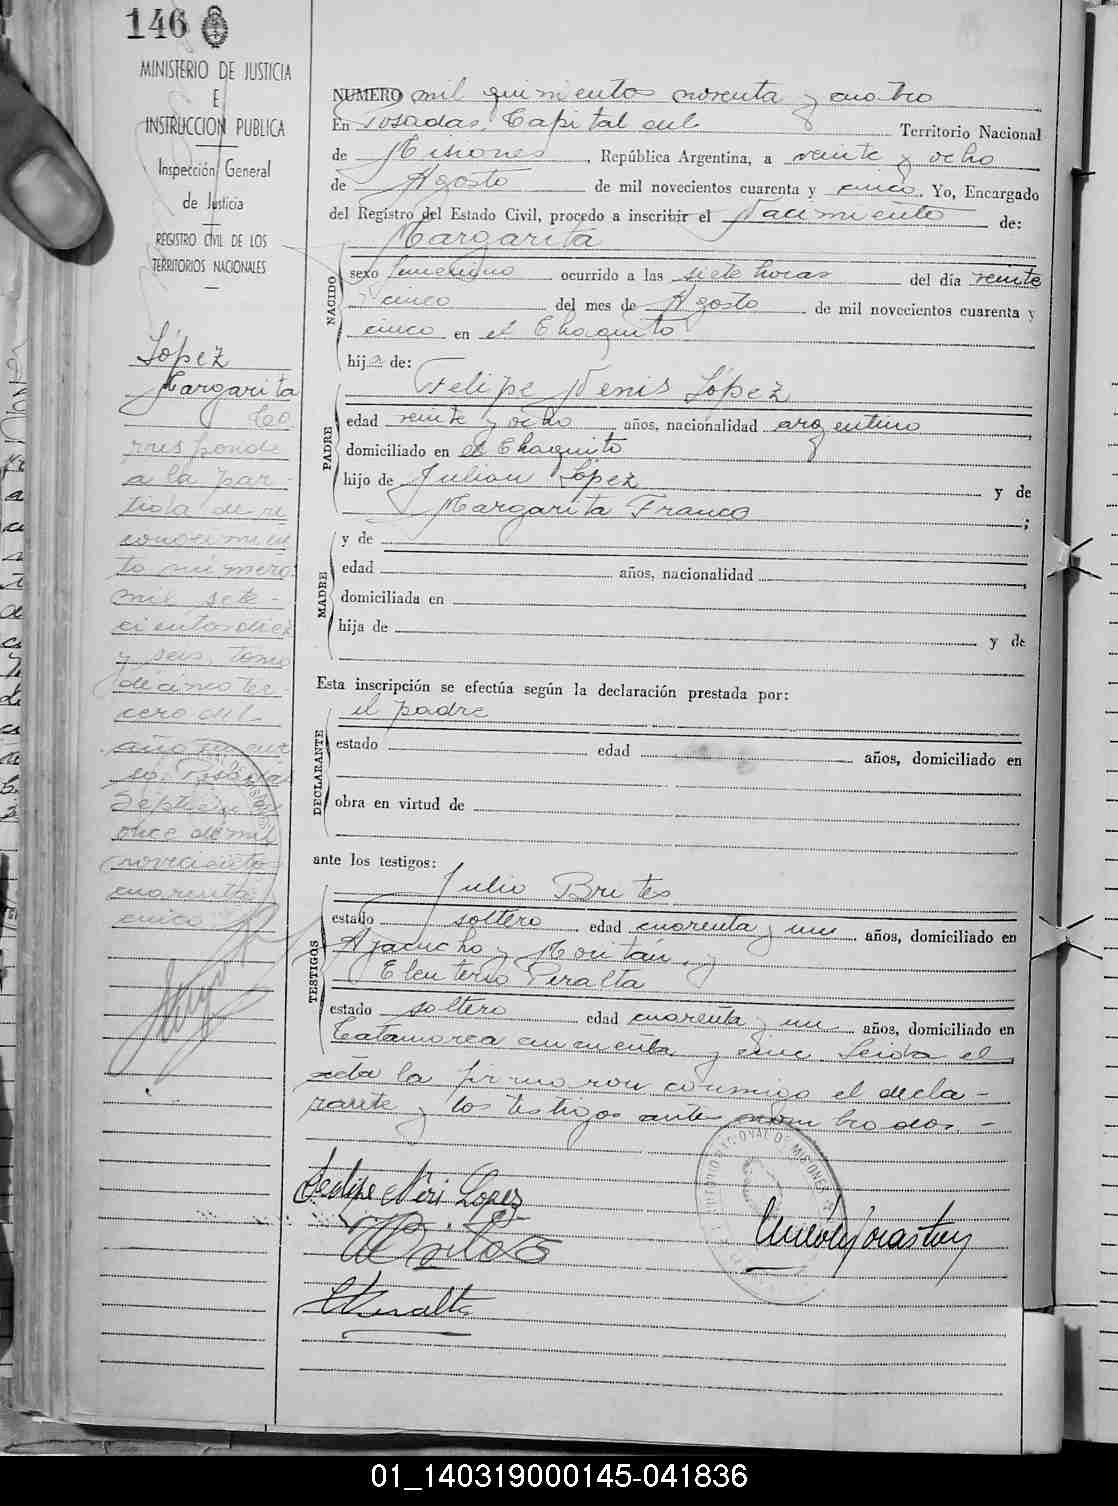 146
MINISTERIO DE JUSTICIA
E
INSTRUCCION PUBLICA
Inspección General
de Justicia
REGISTRO CIVIL DE LOS
TERRITORIOS NACIONALES
López
Margarita
Co
rresponde
a la par-
tida de re
conocimien
to número
mil sete-
cientos diez
y seis, tomo
décimo ter-
cero del
año en cur
so. Posadas
Septiembre
once de mil
novecientos
cuarenta
cinco
NUMERO mil quinientos noventa y cuatro
En Posadas, Capital del Territorio Nacional
de Misiones, República Argentina, a veinte y ocho
de Agosto de mil novecientos cuarenta y cinco. Yo, Encargado
del Registro del Estado Civil, procedo a inscribir el Nacimiento de:
Margarita
NACIDO
sexo femenino ocurrido a las siete horas del día veinte
cinco del mes de Agosto de mil novecientos cuarenta y
cinco en el Chaquito
hija de:
Felipe Neris López
PADRE
edad veinte y ocho años, nacionalidad argentino
domiciliado en el Chaquito
hijo de Julian López y de
Margarita Franco ;
MADRE
y de
edad años, nacionalidad
domiciliada en
hija de y de
Esta inscripción se efectúa según la declaración prestada por:
el padre
DECLARANTE
estado edad años, domiciliado en
obra en virtud de
ante los testigos:
Julio Brites
TESTIGOS
estado soltero edad cuarenta y un años, domiciliado en
Ayacucho y , y
Eleuterio Peralta
estado soltero edad cuarenta y un años, domiciliado en
Catamarca cincuenta y Leida el
acta la firmaron conmigo el decla-
rante y los testigos antes nombrados.-
Felipe Neri Lopez
01_140319000145-041836